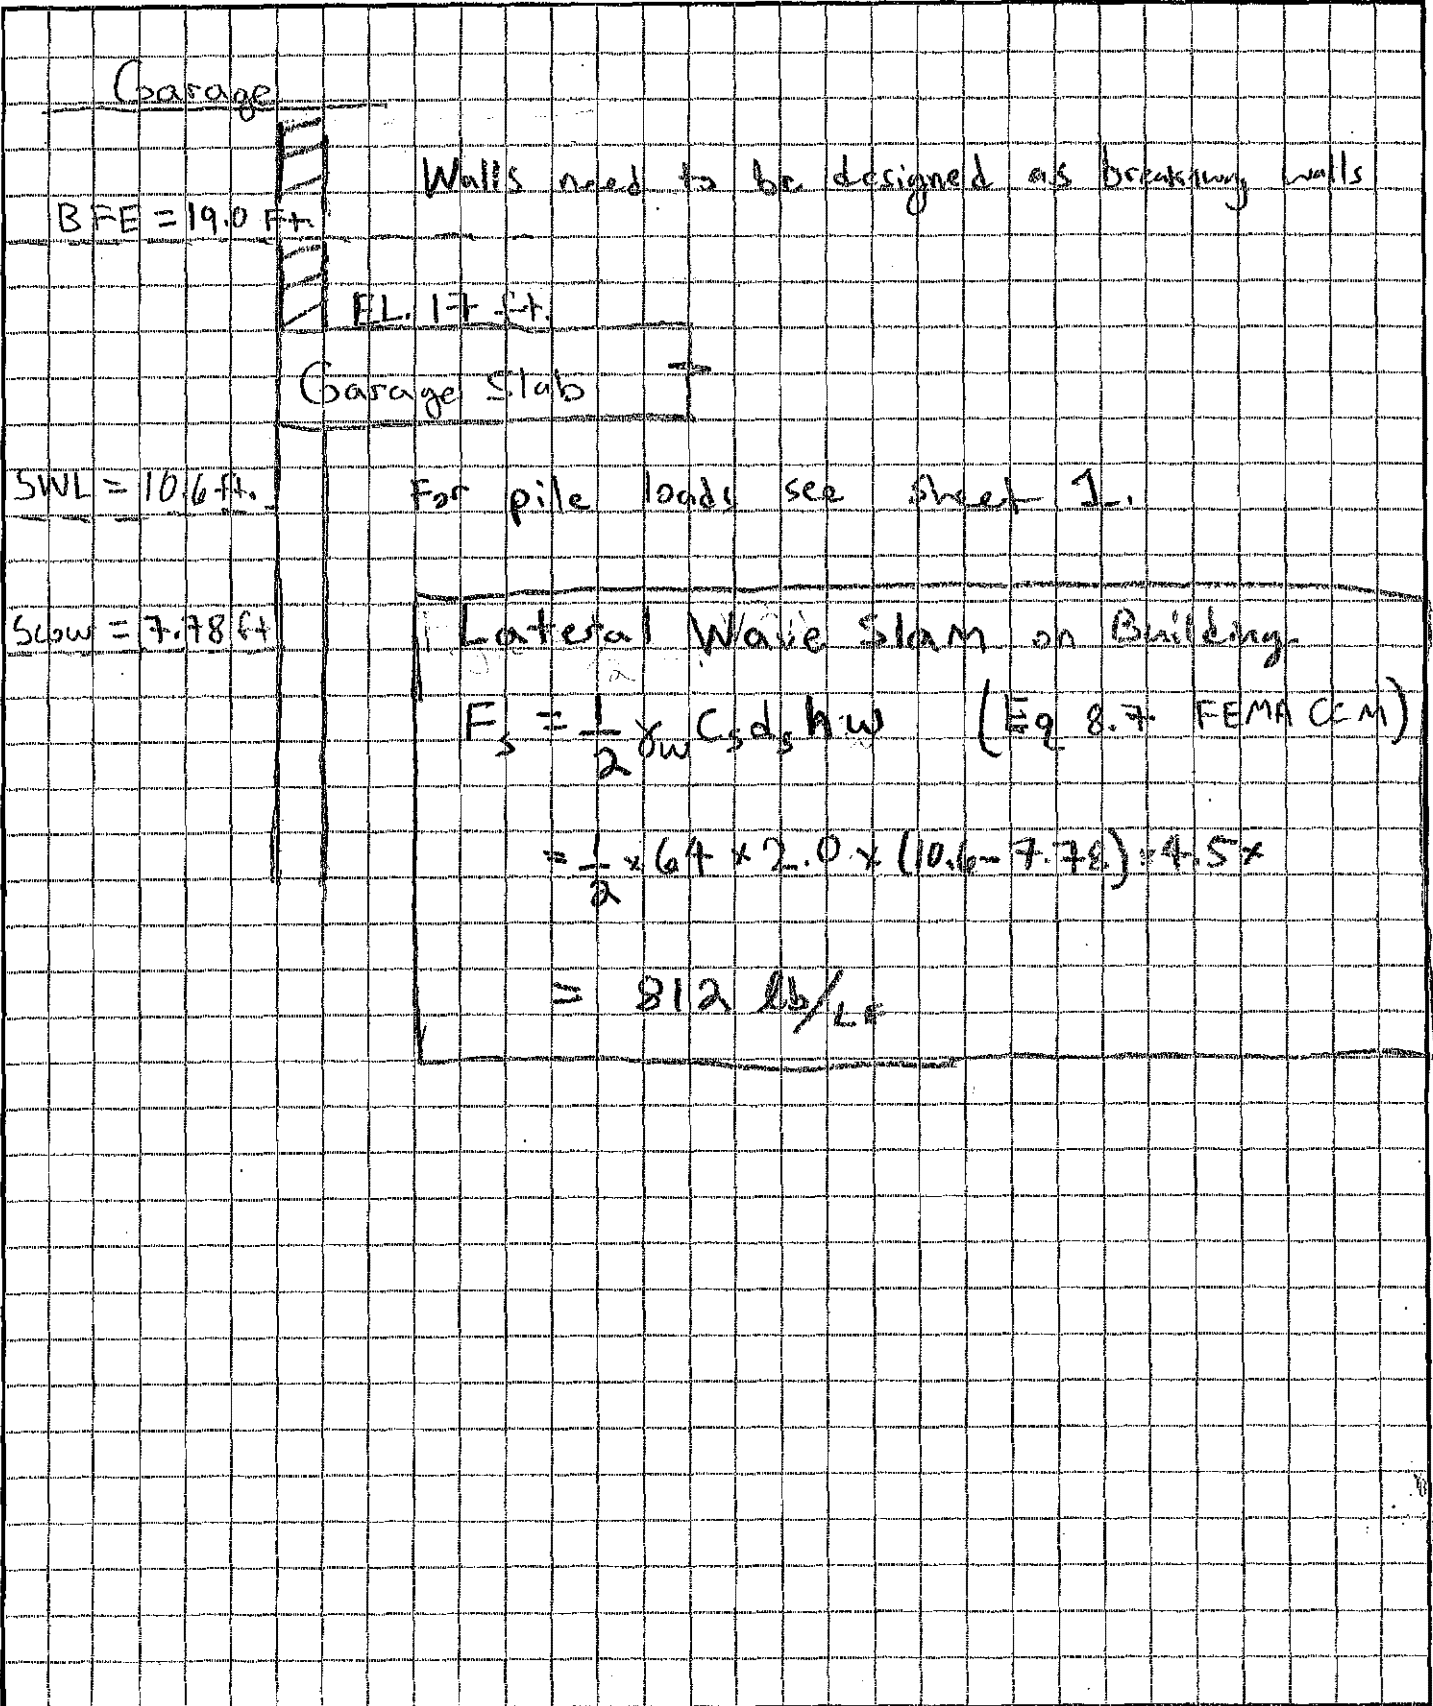 Garage
Walls need to be designed as breakaway walls
BFE = 19.0 Ft.
EL. 17 ft.
Garage Slab
SWL = 10.6 ft.
For pile loads see Sheet 1.
= 7.78 ft
Lateral Wave Slam on Building
Fs = 1/2 γw Cs ds h w (Eq 8.7 FEMA CCM)
= 1/2 × 64 × 2.0 × (10.6 - 7.78) × 4.5 ×
= 812 lb/LF